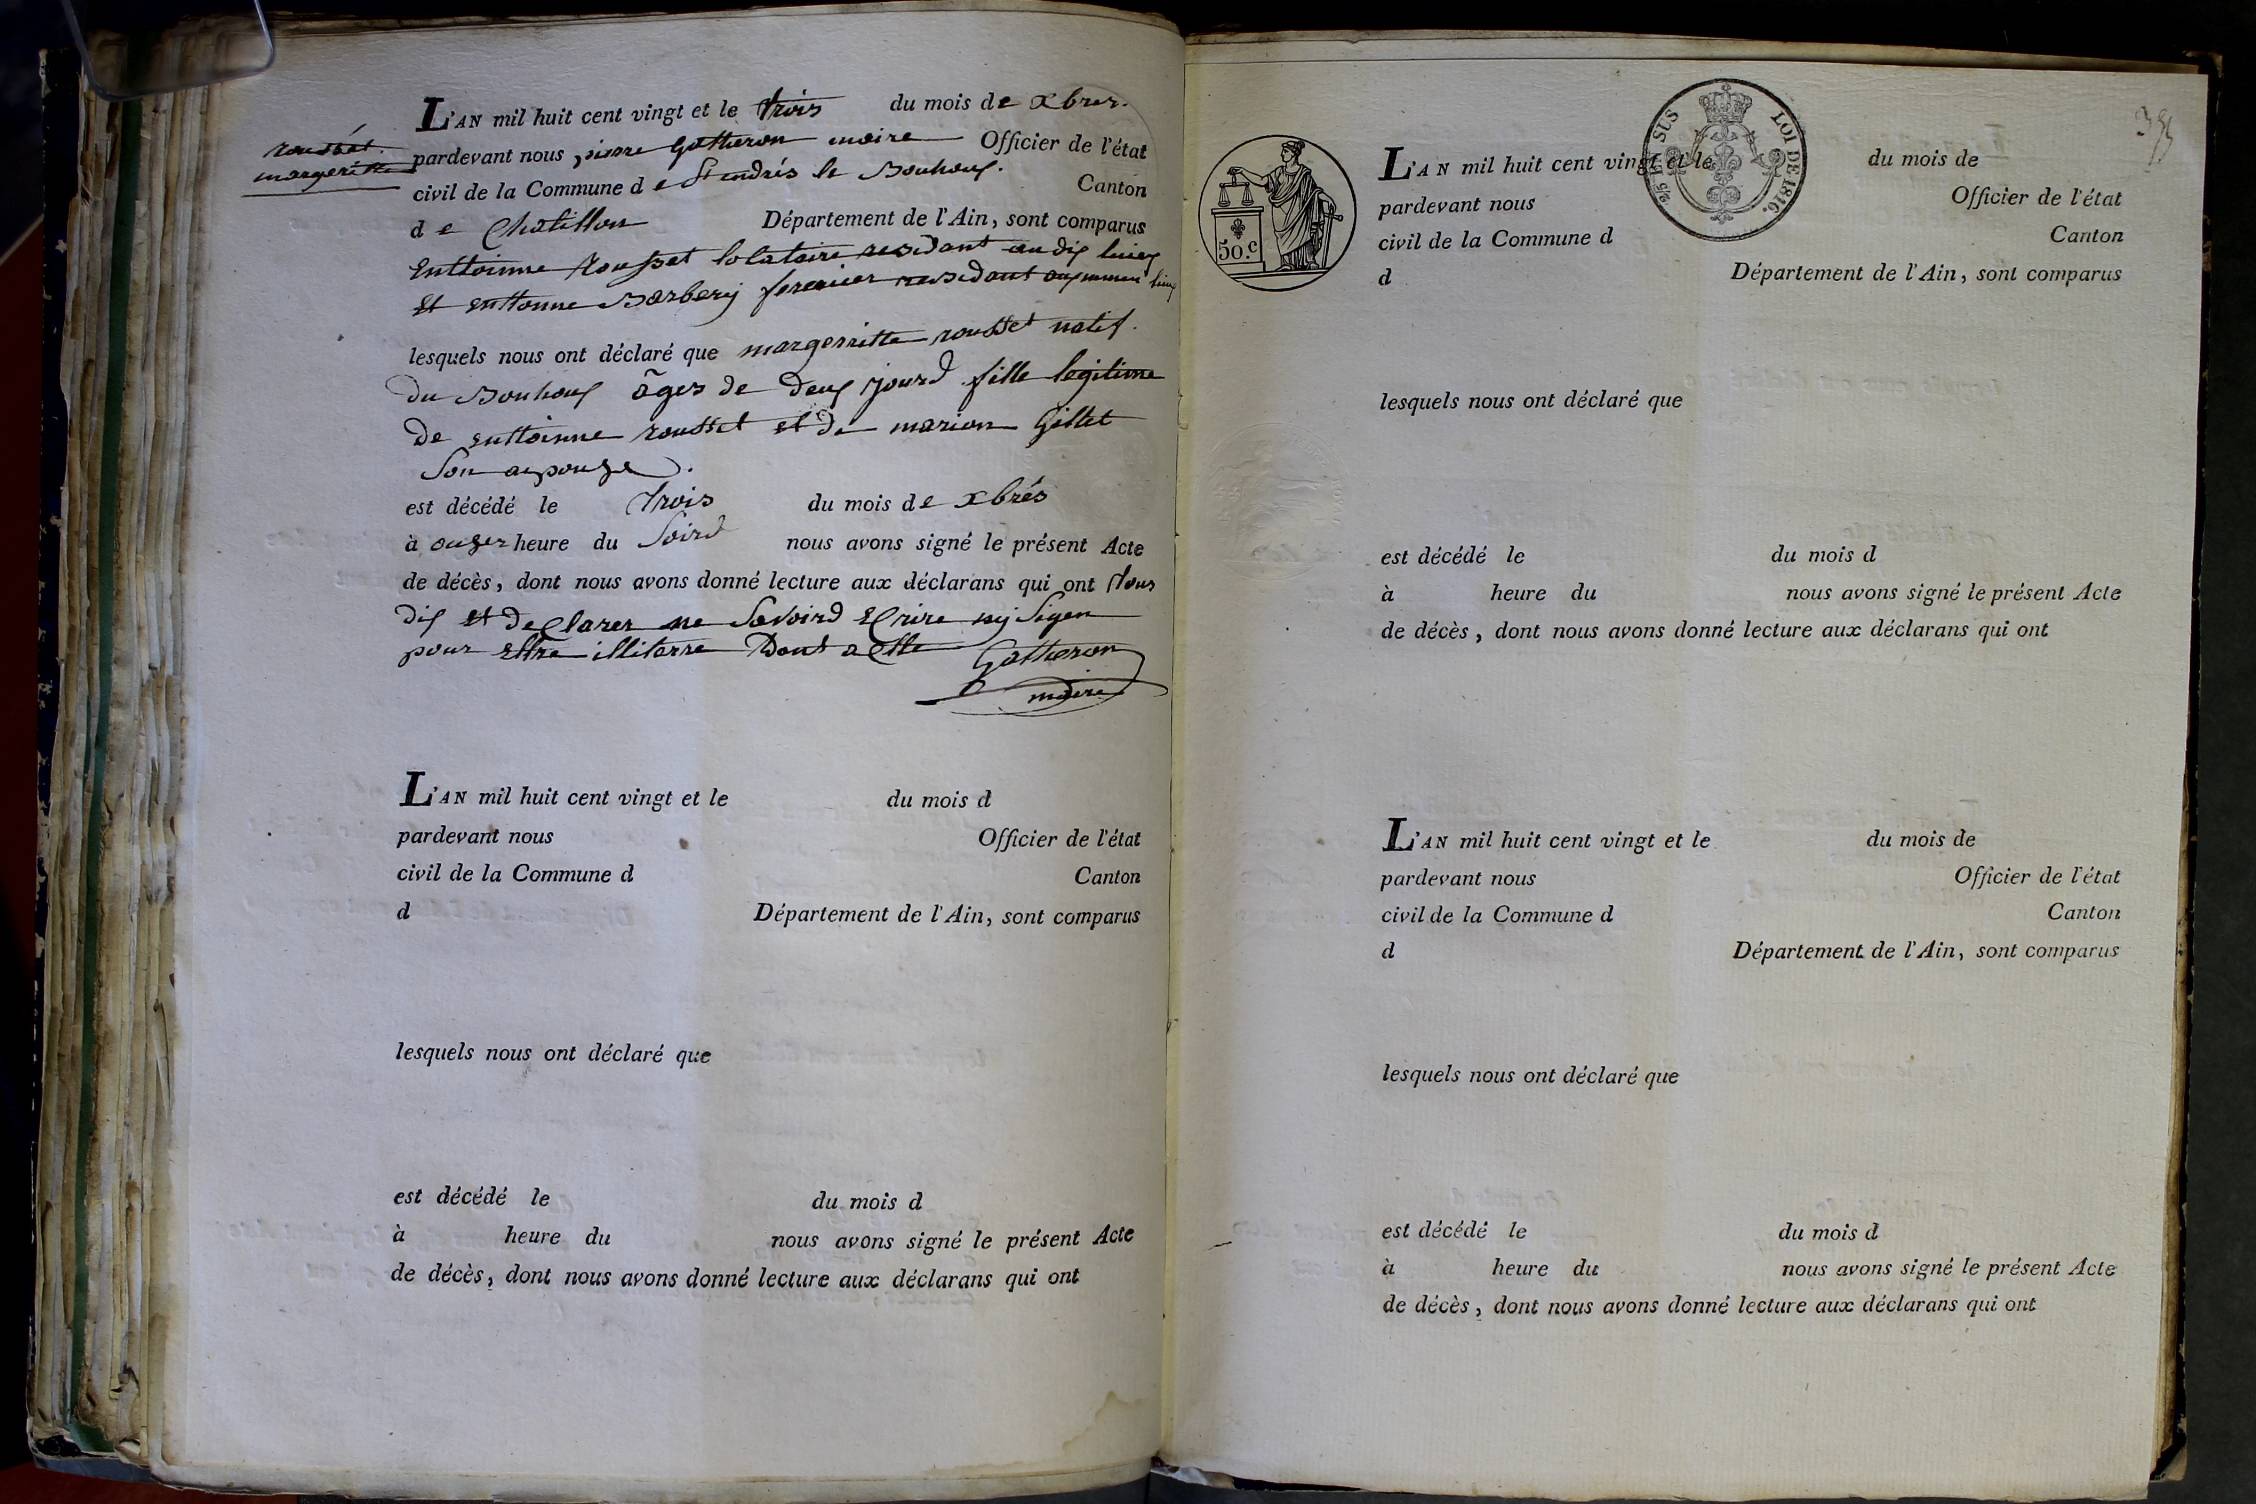 L'AN mil huit cent vingt et le trois du mois de xbrer.
roussét.
margeritte
pardevant nous, pierre Gatheron maire Officier de l'état
civil de la Commune de St endrés le Bouhoux. Canton
de Chatillon Département de l'Ain, sont comparus
enttoinne rousset locataire residant au dis lieux
et enttonne Barberij fermier residant
lesquels nous ont déclaré que margerritte rousset natif.
du Bouhoux âges de deux jourd fille legitime
de enttoinne rousset et de marion Gillet
son aepouze.
est décédé le trois du mois de xbrés
à onzer heure du soird nous avons signé le présent Acte
de décès, dont nous avons donné lecture aux déclarans qui ont tous
dis et declarer ne savoird ecrire nij signer
pour ettre illiterre Dont actte Gatheron
maire
L'AN mil huit cent vingt et le du mois d
pardevant nous Officier de l'état
civil de la Commune d Canton
d Département de l'Ain, sont comparus
lesquels nous ont déclaré que
est décédé le du mois d
à heure du nous avons signé le présent Acte
de décès, dont nous avons donné lecture aux déclarans qui ont
EN SUS LOI DE 1816.
50.c
L'AN mil huit cent vingt et le du mois de
pardevant nous Officier de l'état
civil de la Commune d Canton
d Département de l'Ain, sont comparus
lesquels nous ont déclaré que
est décédé le du mois d
à heure du nous avons signé le présent Acte
de décès, dont nous avons donné lecture aux déclarans qui ont
L'AN mil huit cent vingt et le du mois de
pardevant nous Officier de l'état
civil de la Commune d Canton
d Département de l'Ain, sont comparus
lesquels nous ont déclaré que
est décédé le du mois d
à heure du nous avons signé le présent Acte
de décès, dont nous avons donné lecture aux déclarans qui ont